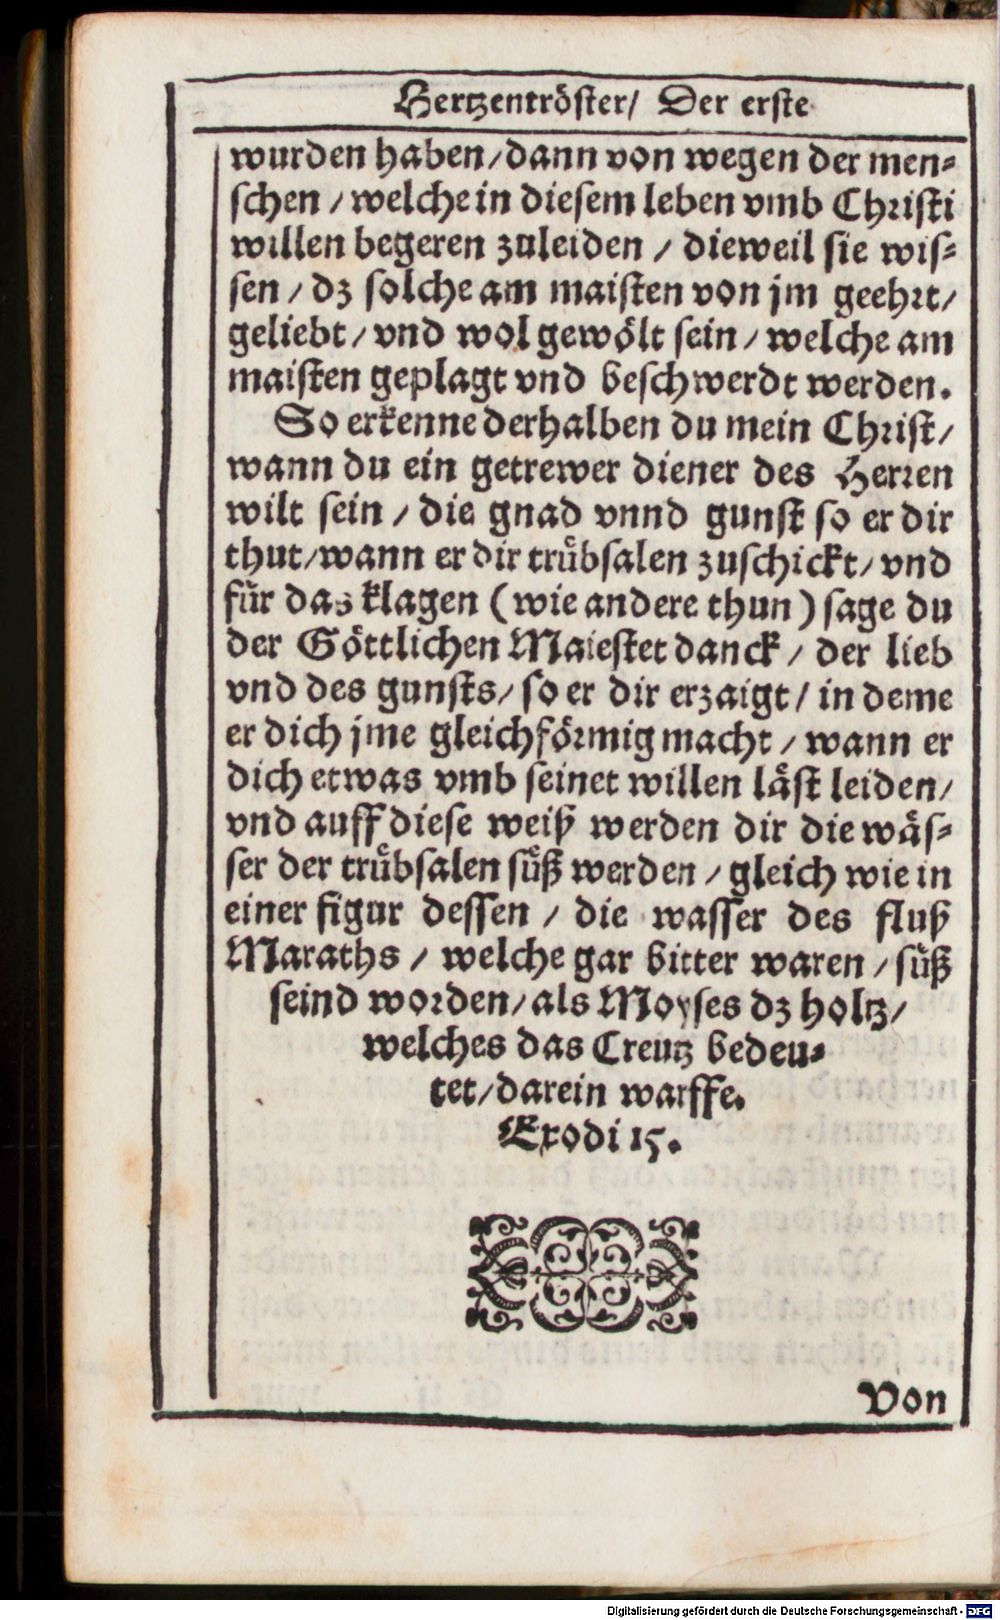 Hertzentröster/ Der erste
wurden haben/dann von wegen der men-
schen/welche in diesem leben vmb Christi
willen begeren zuleiden/dieweil sie wis-
sen/dz solche am maisten von jm geehrt/
geliebt/vnd wol gewölt sein/welche am
maisten geplagt vnd beschwerdt werden.
So erkenne derhalben du mein Christ/
wann du ein getrewer diener des Herren
wilt sein/die gnad vnnd gunst so er dir
thut/wann er dir trübsalen zuschickt/vnd
für das klagen (wie andere thun) sage du
der Göttlichen Maiestet danck/der lieb
vnd des gunsts/so er dir erzaigt/in deme
er dich jme gleichförmig macht/wann er
dich etwas vmb seinet willen läst leiden/
vnd auff diese weiß werden dir die wäs-
ser der trübsalen süß werden/gleich wie in
einer figur dessen/die wasser des fluß
Maraths/welche gar bitter waren/süß
seind worden/als Moyses dz holtz/
welches das Creutz bedeu-
tet/darein warffe.
Exodi 15.
Von
Digitalisierung gefördert durch die Deutsche Forschungsgemeinschaft - DFG